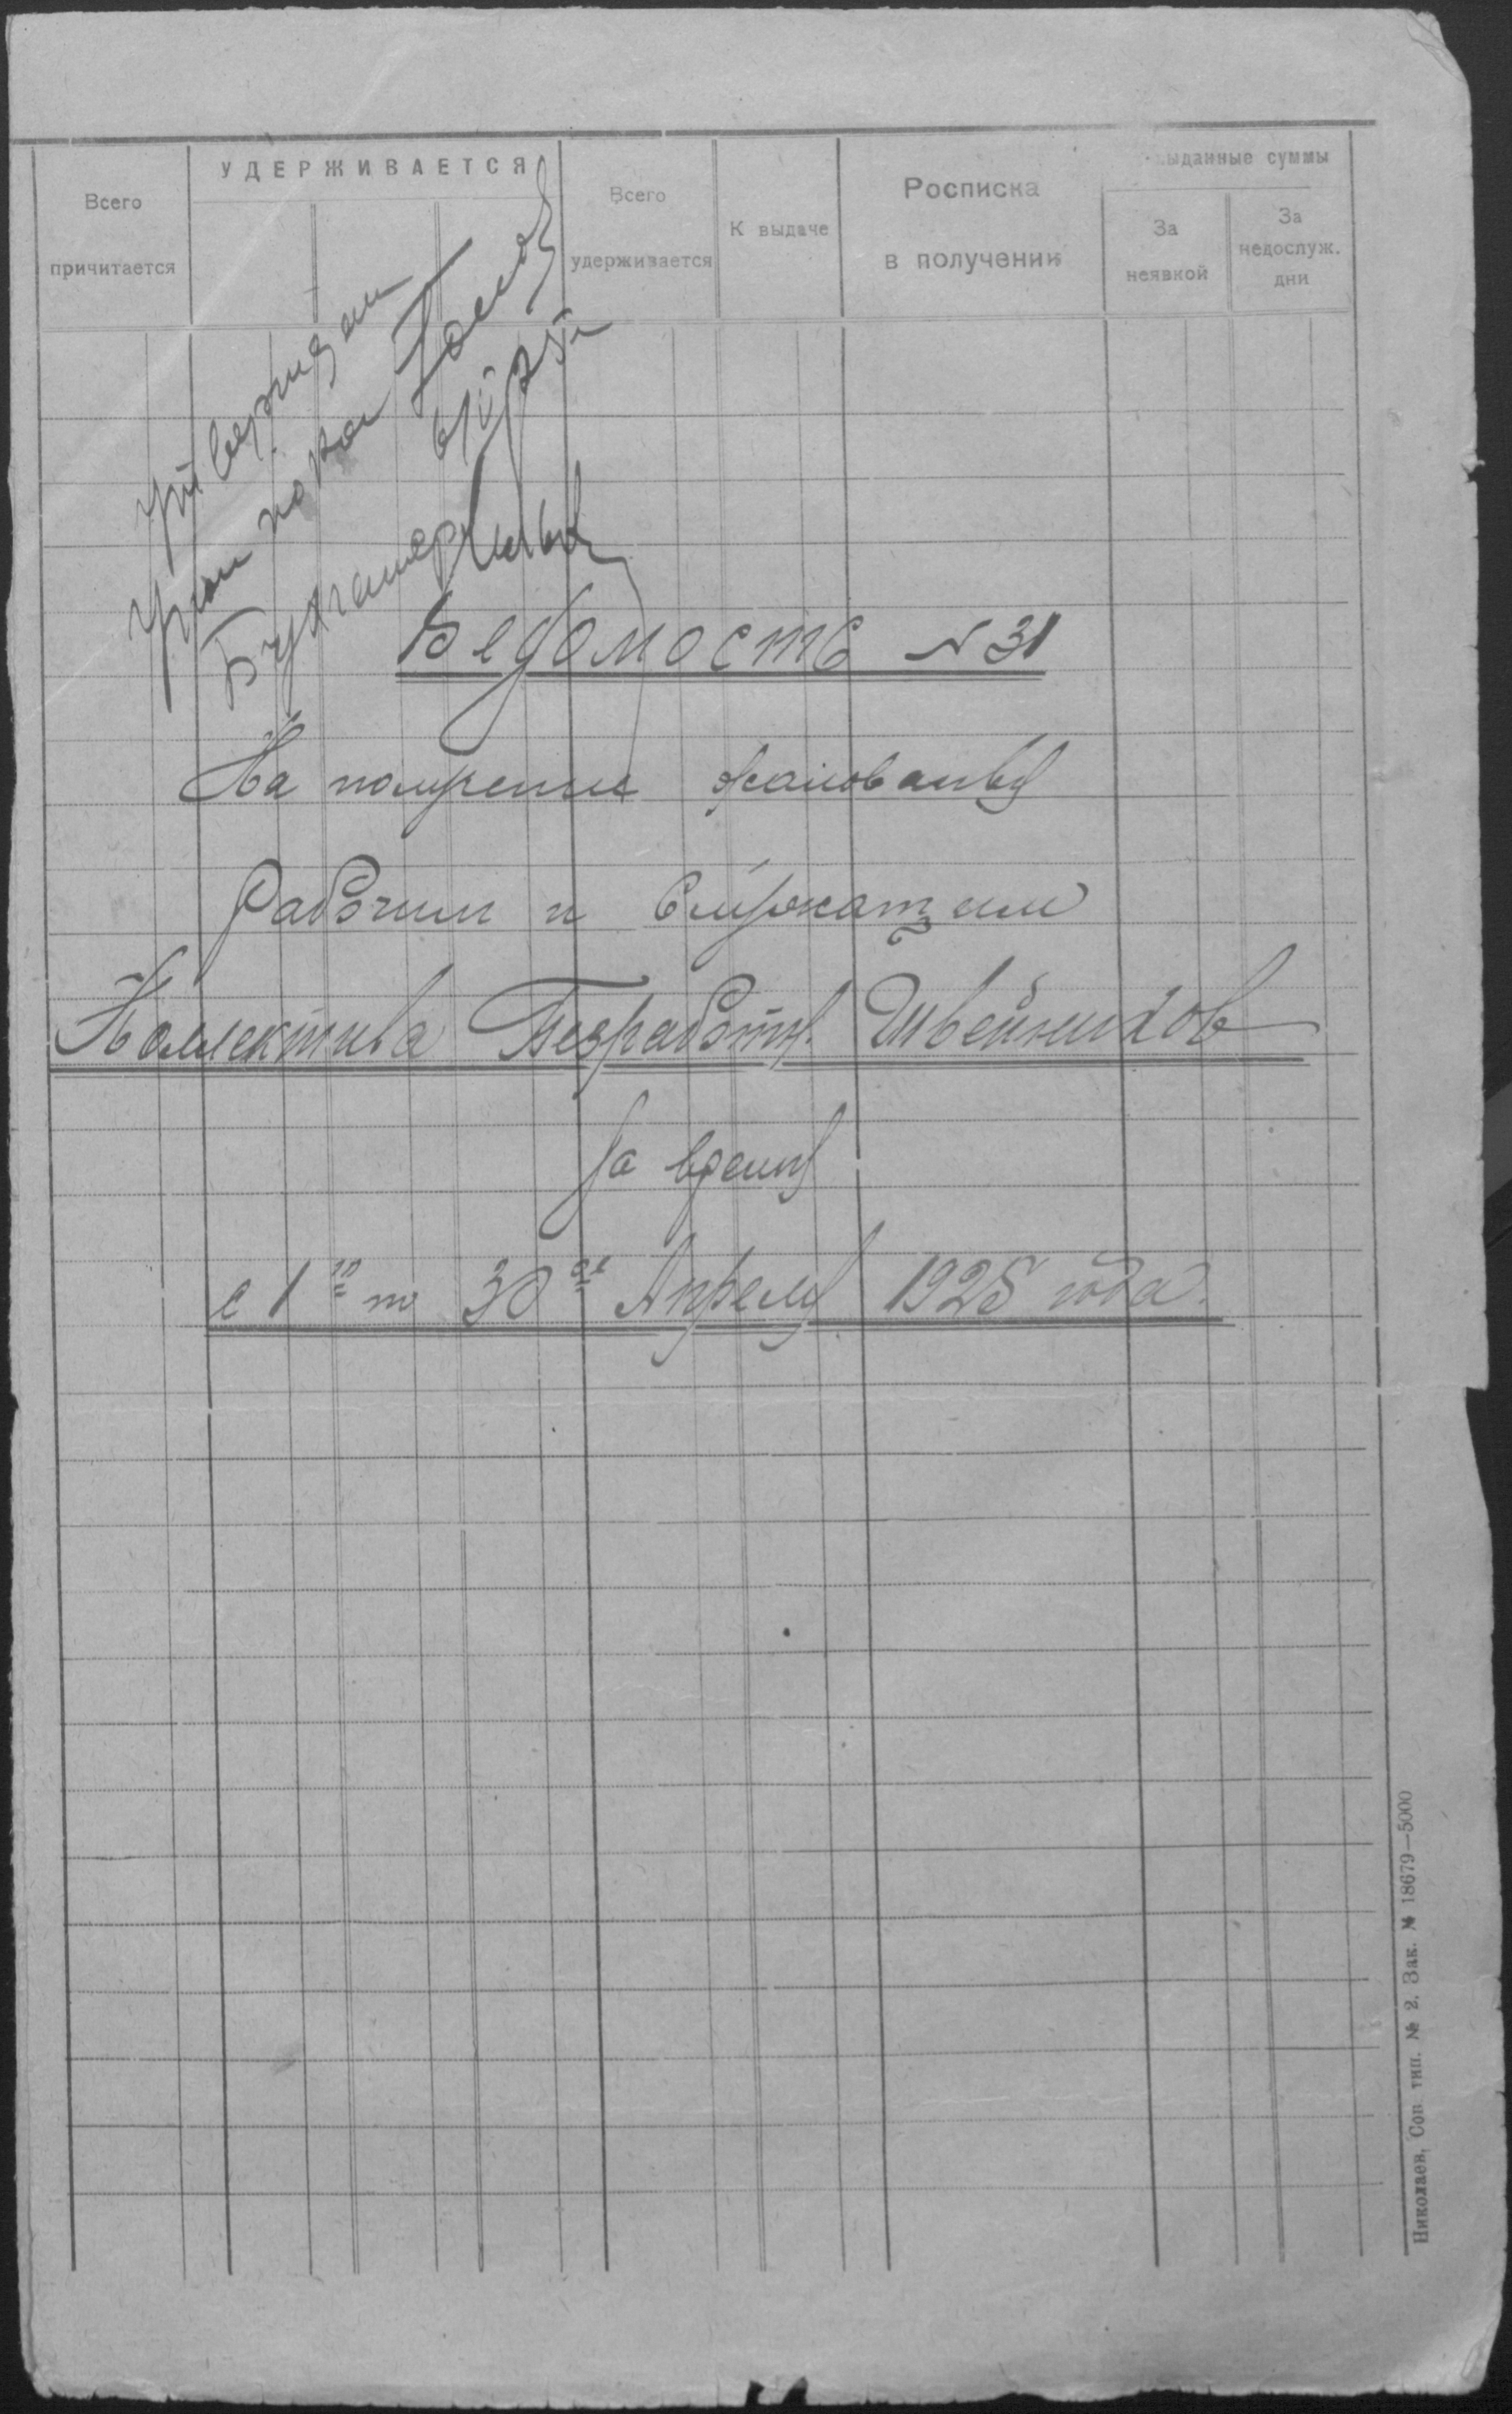 Всего
причитается
УДЕРЖИВАЕТСЯ
Всего
удерживается
К выдаче
Росписка
в получении
выданные суммы
За
неявкой
За
недослуж.
дни
Утверждаю
Бухгалтер
Ведомость N 31
На получение жалованья
Рабочим и Служащим
Коллектива Безработн. Швейников
За время
с 1го по 30ое Апреля 1925 года.
Николаев, Сов. тип. № 2. Зак. № 18679—5000